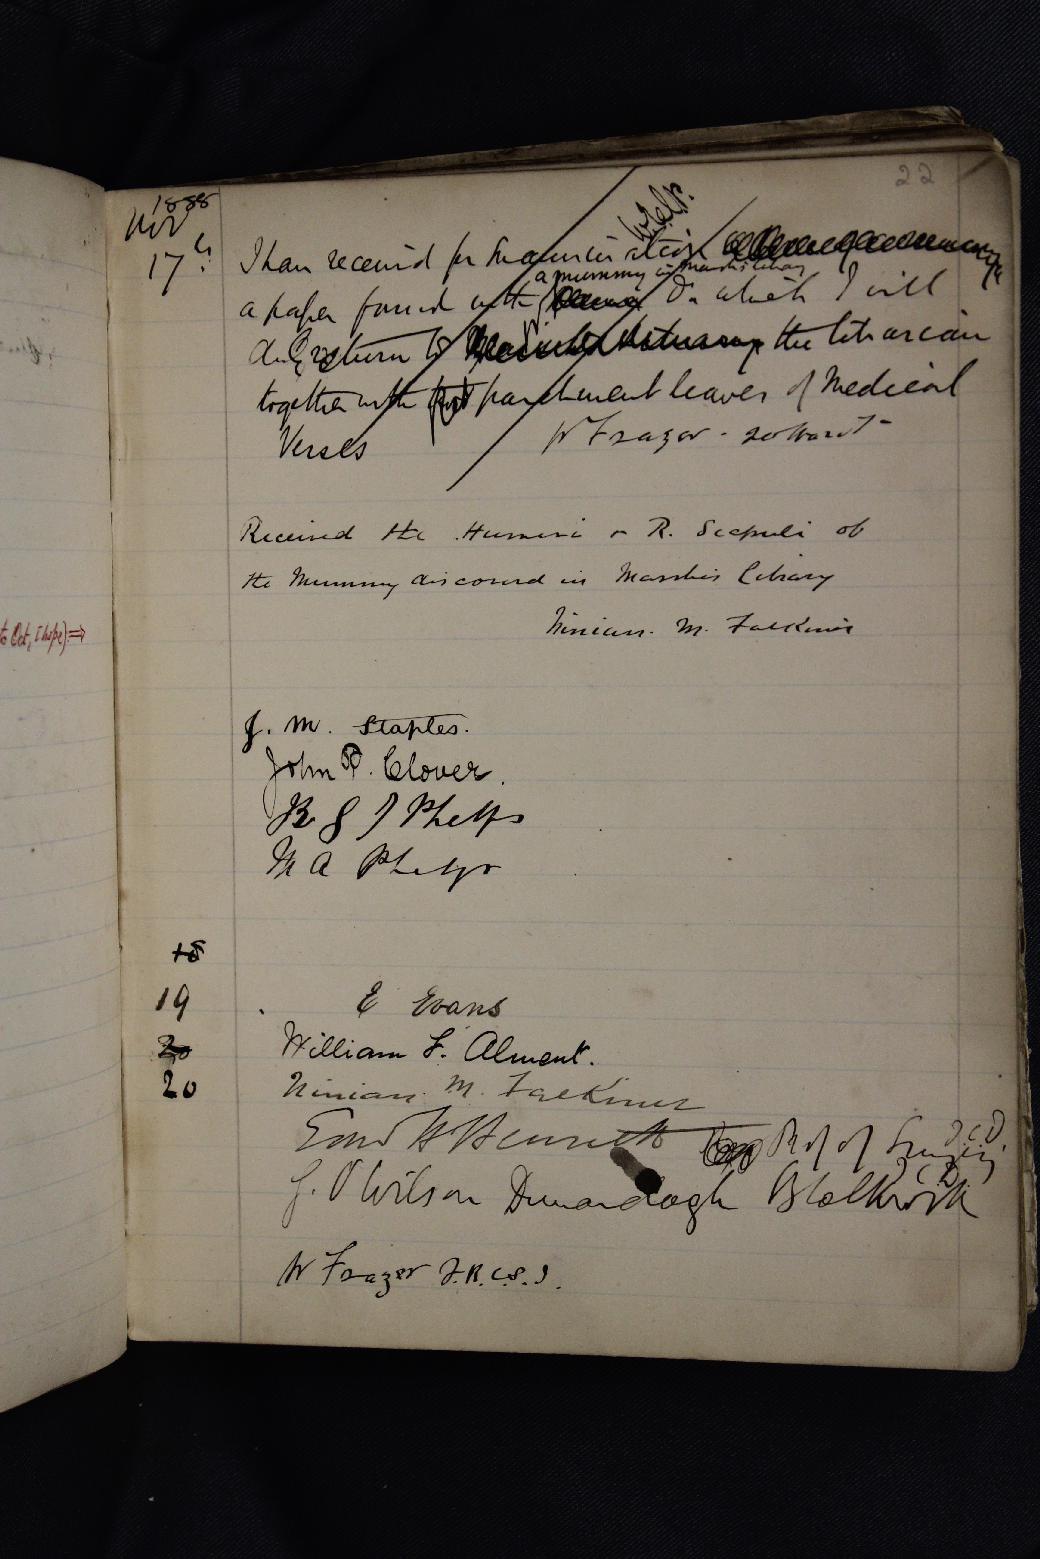 22
1888
Nov
17th
I have received for examination
a mummy in Marsh's Library
a paper found with &c which I will
duly return to the librarian
together with parchment leaves of Medical
Verses W Frazer - 20 Harcourt
Received the Humeri & R. Scapuli of
the Mummy discovered in Marshes Library
Ninian. M. Falkiner
J. M. Staples.
John P. Clover.
Phelps
M A Phelps
18
19 E Evans
William F. Alment.
20
20 Ninian. M. Falkiner
Edwd H Bennett Prof of Surgery T.C.D.
J. O Wilson Dunardagh Blackrock
W Frazer F.R.C.S.I.
to Oct, [hope] ⇒